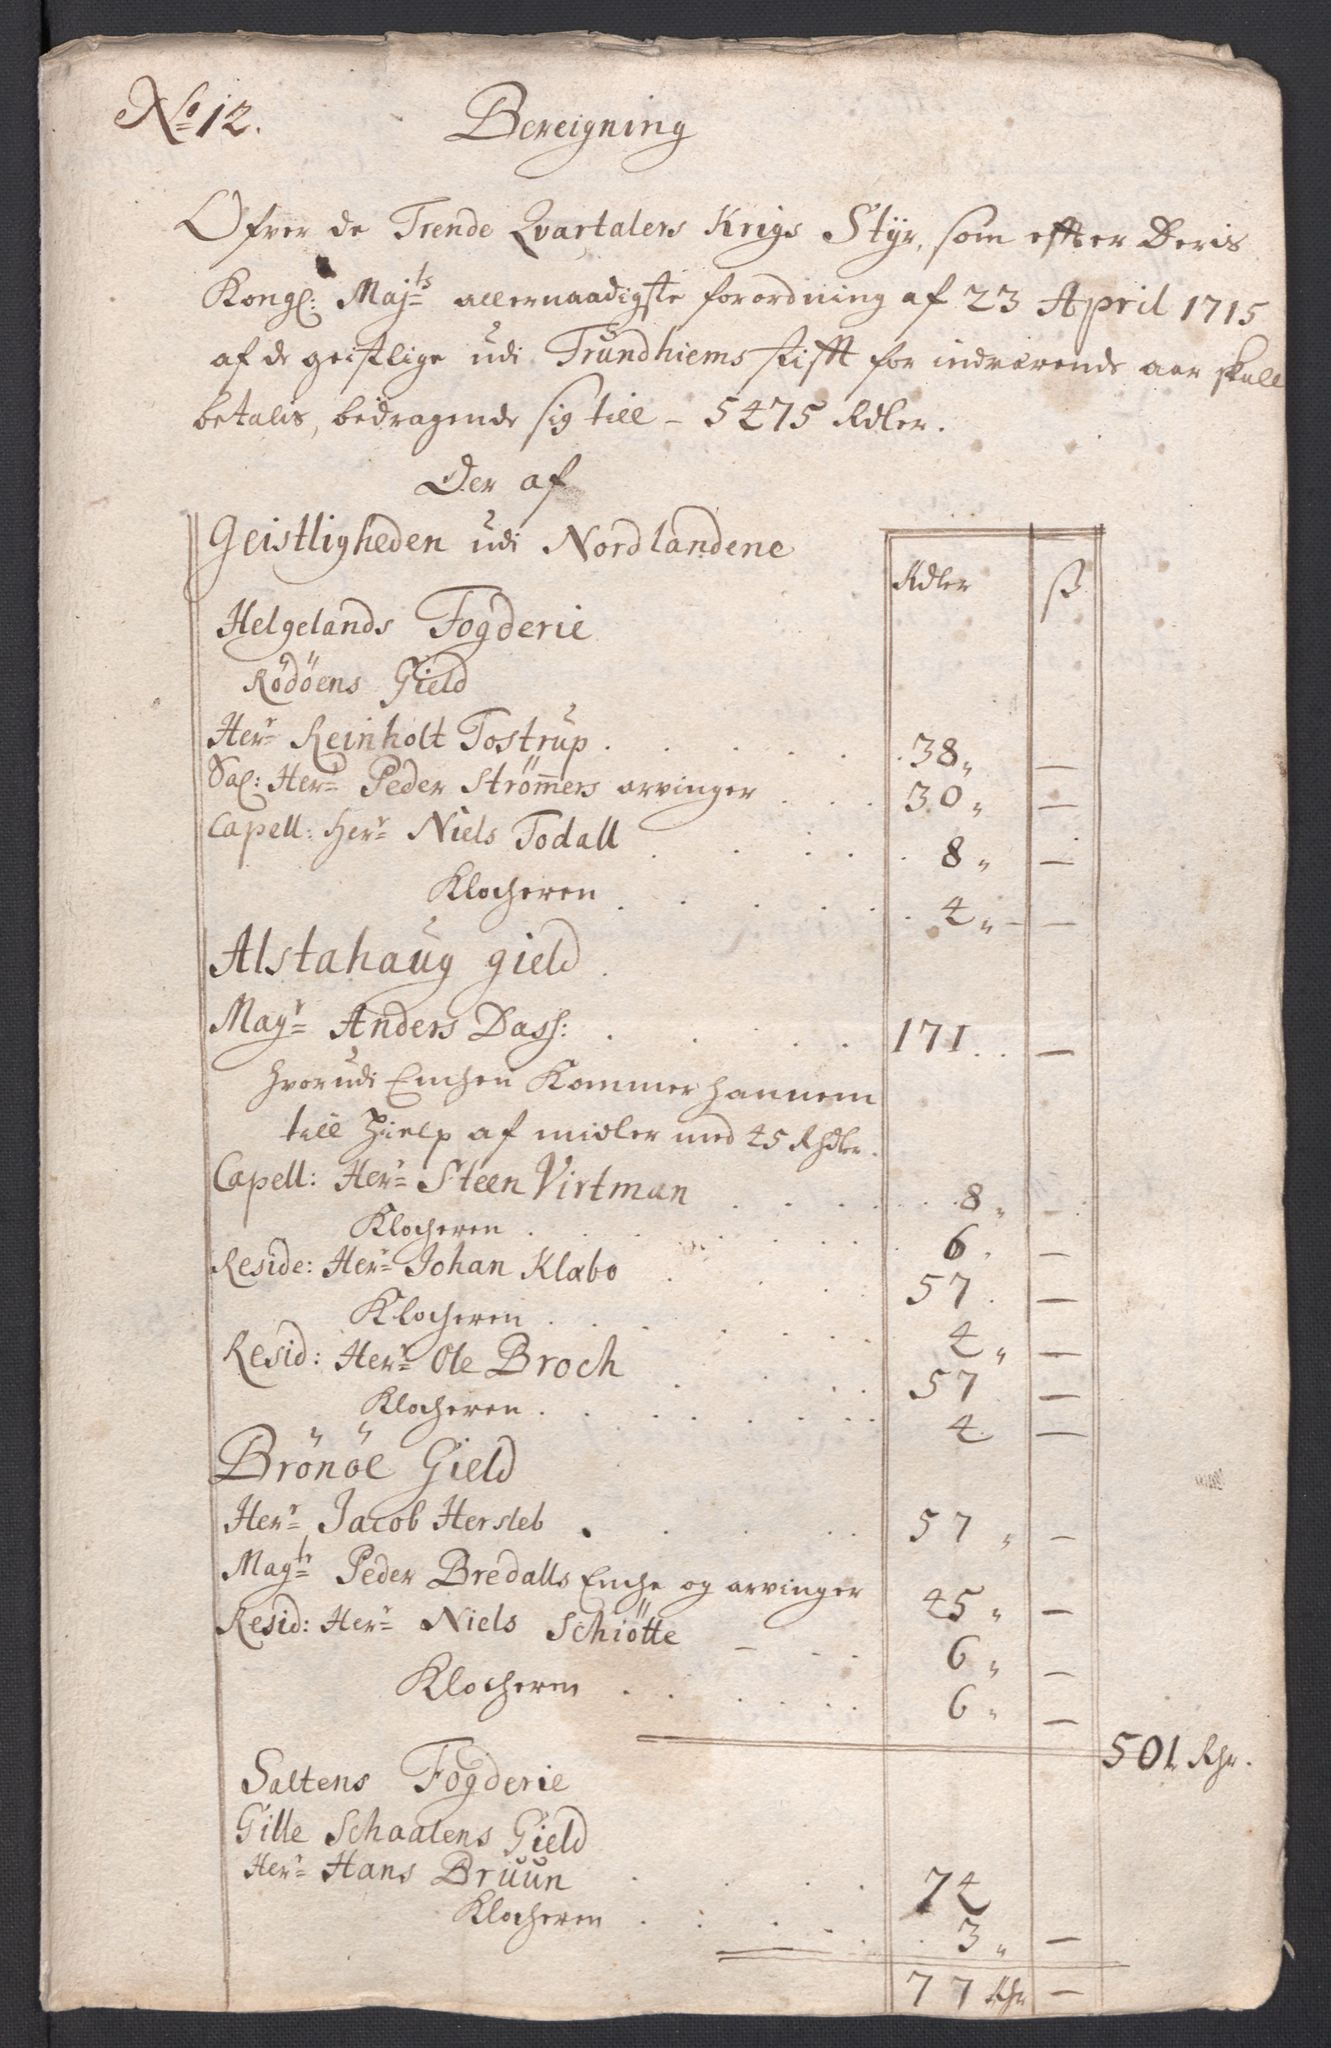 No 12. Bereigning
Ofver de Trende Qvartalers Krigs Styr, som effter Deris
Kongl: Majts allernaadigste forordning af 23 April 1715
af de geistlige udi Trundhiems stifft for indværende aar skall
betalis, bedragende sig till - 5475 Rdler.
Der af
Geistligheden udi Nordlandene
Rdler ß
Helgelands Fogderie
Rödöens Gield
Herr Reinholt Tostrup . . . . . 38 " —
Sal: Herr Peder Strömmers arvinger . . . 30 " —
Capell: Herr Niels Todall . . . . . 8 " —
Klocheren . . . . . . 4 " —
Alstahaug gield .
Magr Anders Dass: . . . . 171 . . —
hvorudi Enchen Kommer hannem
till hielp af midler med 45 Rhdler.
Capell: Herr Steen Virtman . . . . . 8 " —
Klocheren . . . . . . . 6 . —
Reside: Herr Johan Klabo . . . 57 . —
Klocheren . . . . . . . 4 " —
Resid: Herr Ole Broch . . . . 57 —
Klocheren . . . . . . . 4 . —
Brönöe Gield
Herr Jacob Hersleb . . . . . 57 " —
Magts Peder Bredalls Enche og arvinger 45 " —
Resid: Herr Niels Schiötte - . . 6 " —
Klocheren . . . . . . 6 " —
501 Rhr.
Saltens Fogderie
Gille Schaalens Gield
Herr Hans Bruun . . . . 74
Klocheren . . . . . . 3 " —
77 Rhr —